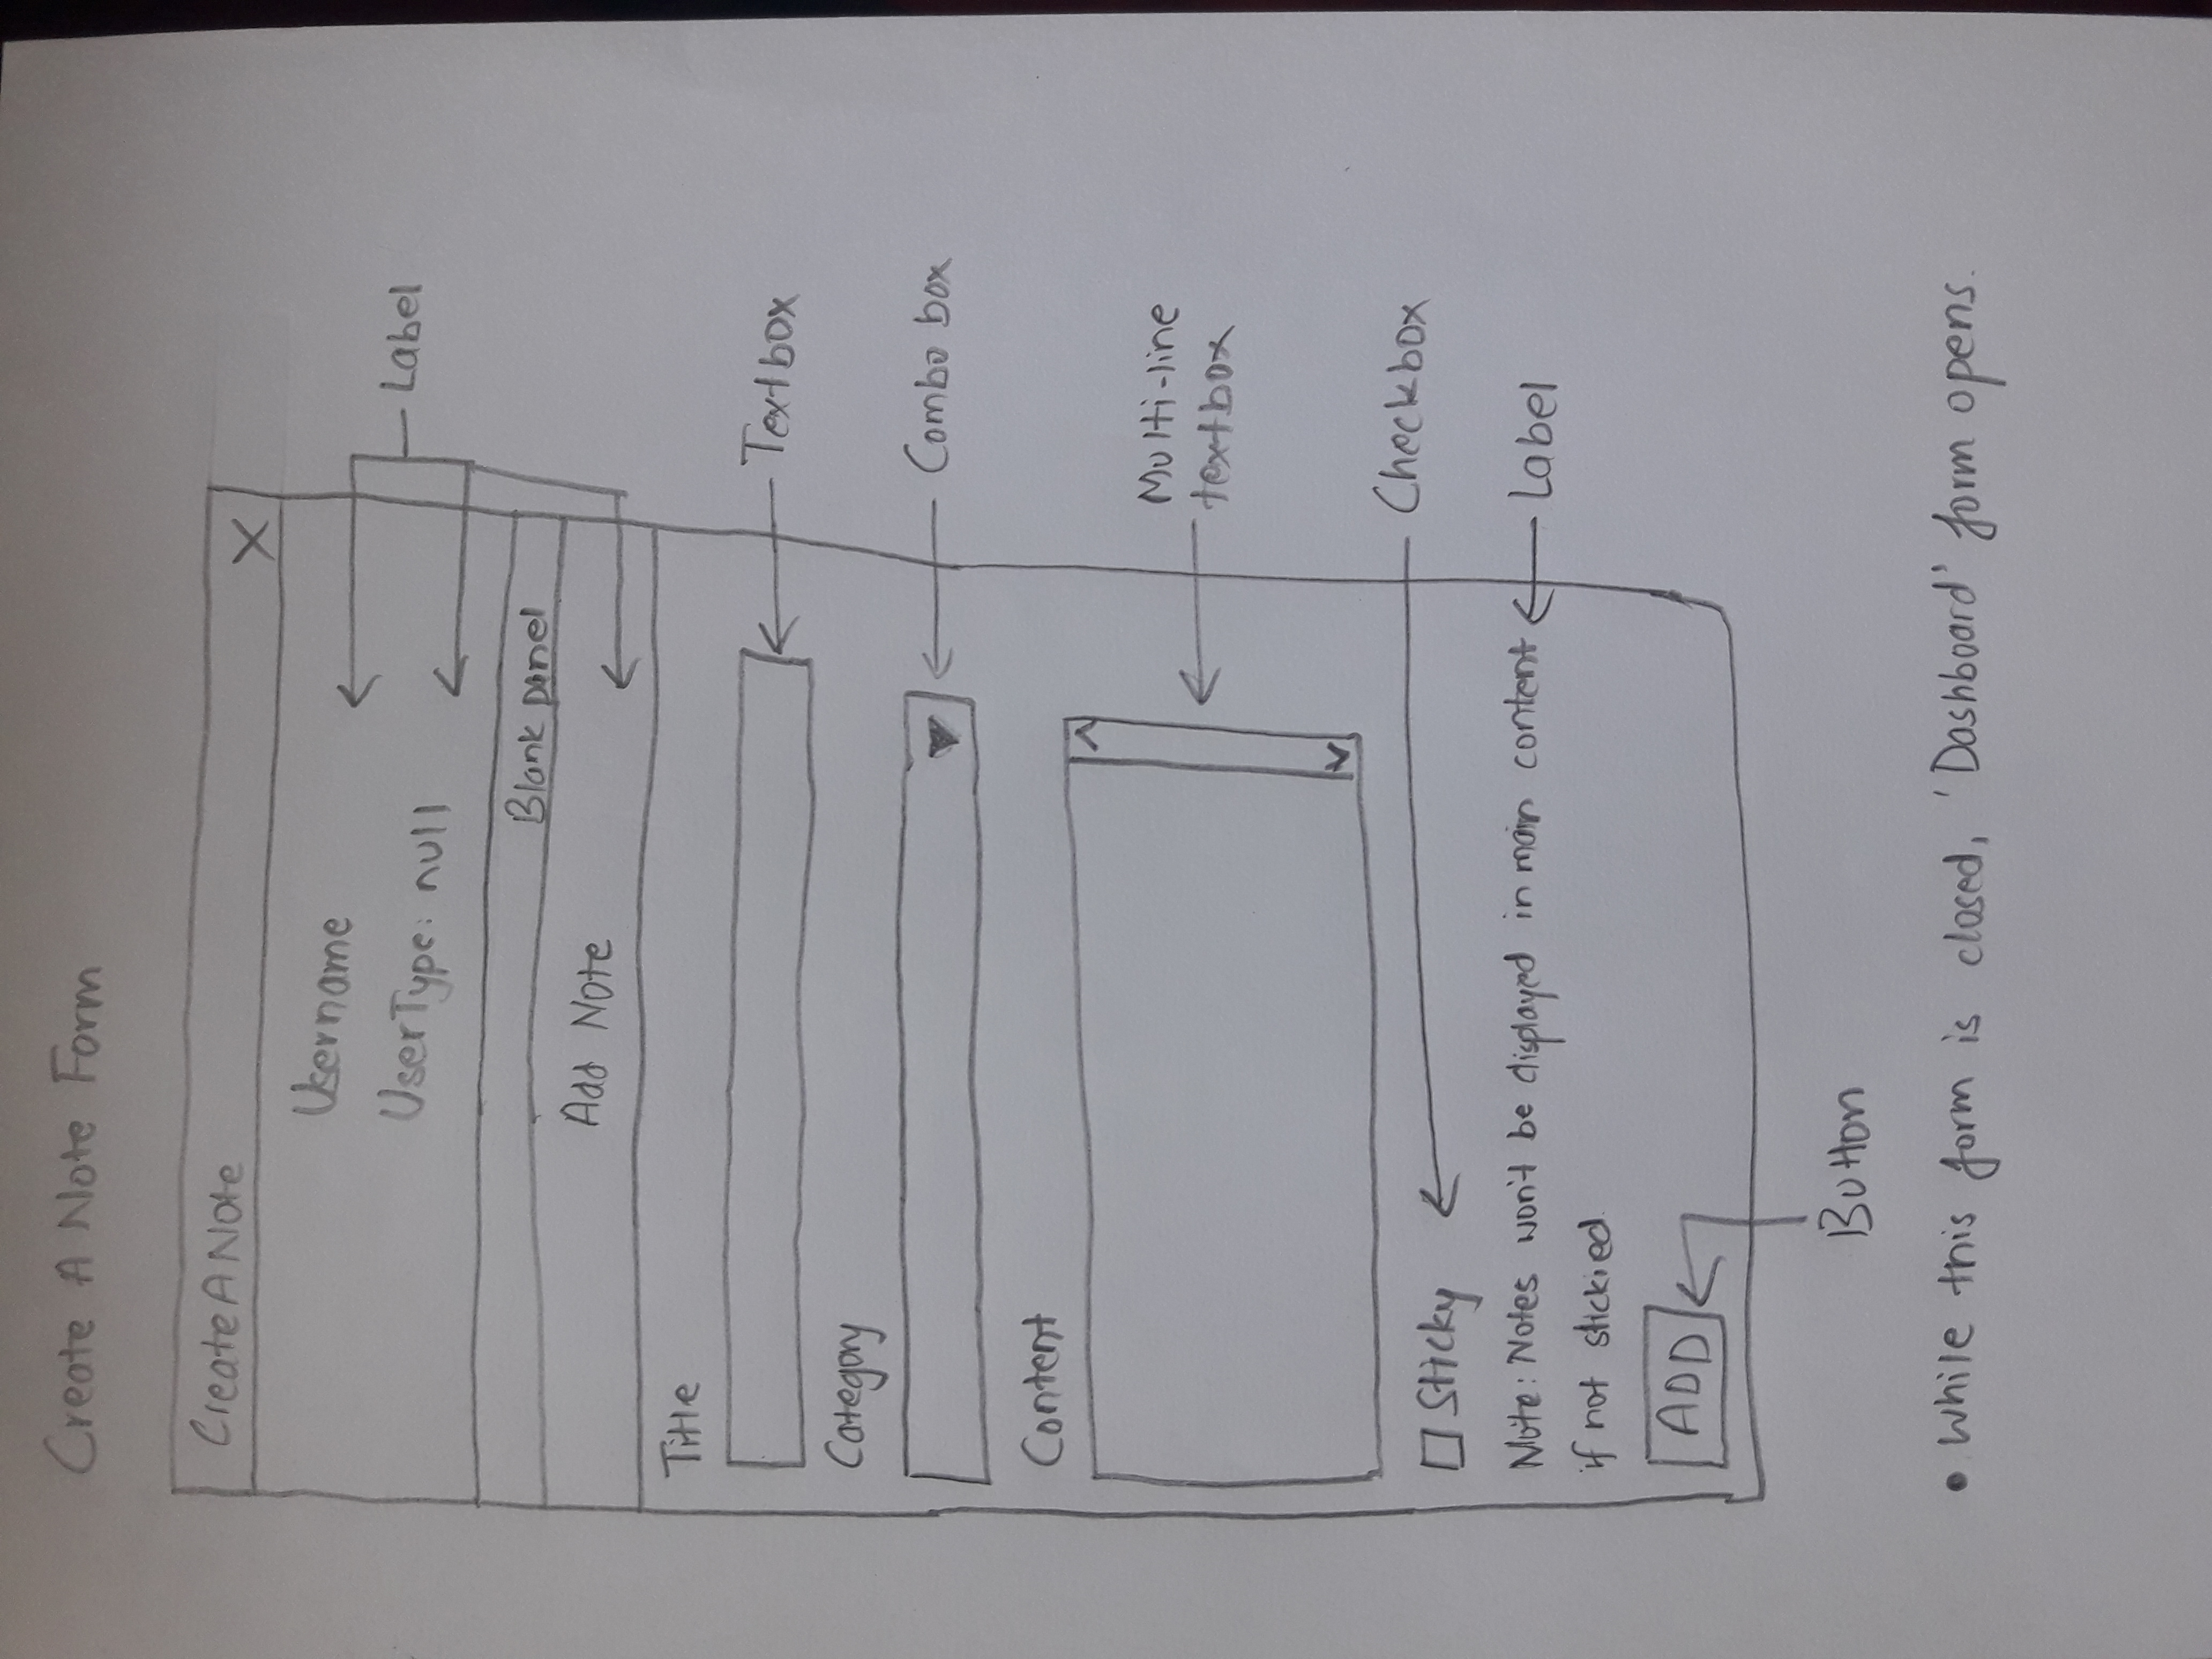 Create A Note Form
CreateANote
X
Username
UserType: null
Label
Blank panel
Add Note
Title
Textbox
Category
Combo box
Content
Multi-line
textbox
Checkbox
Sticky
Note: Notes won't be displayed in main content
Label
if not stickied.
ADD
Button
• While this form is closed, 'Dashboard' form opens.